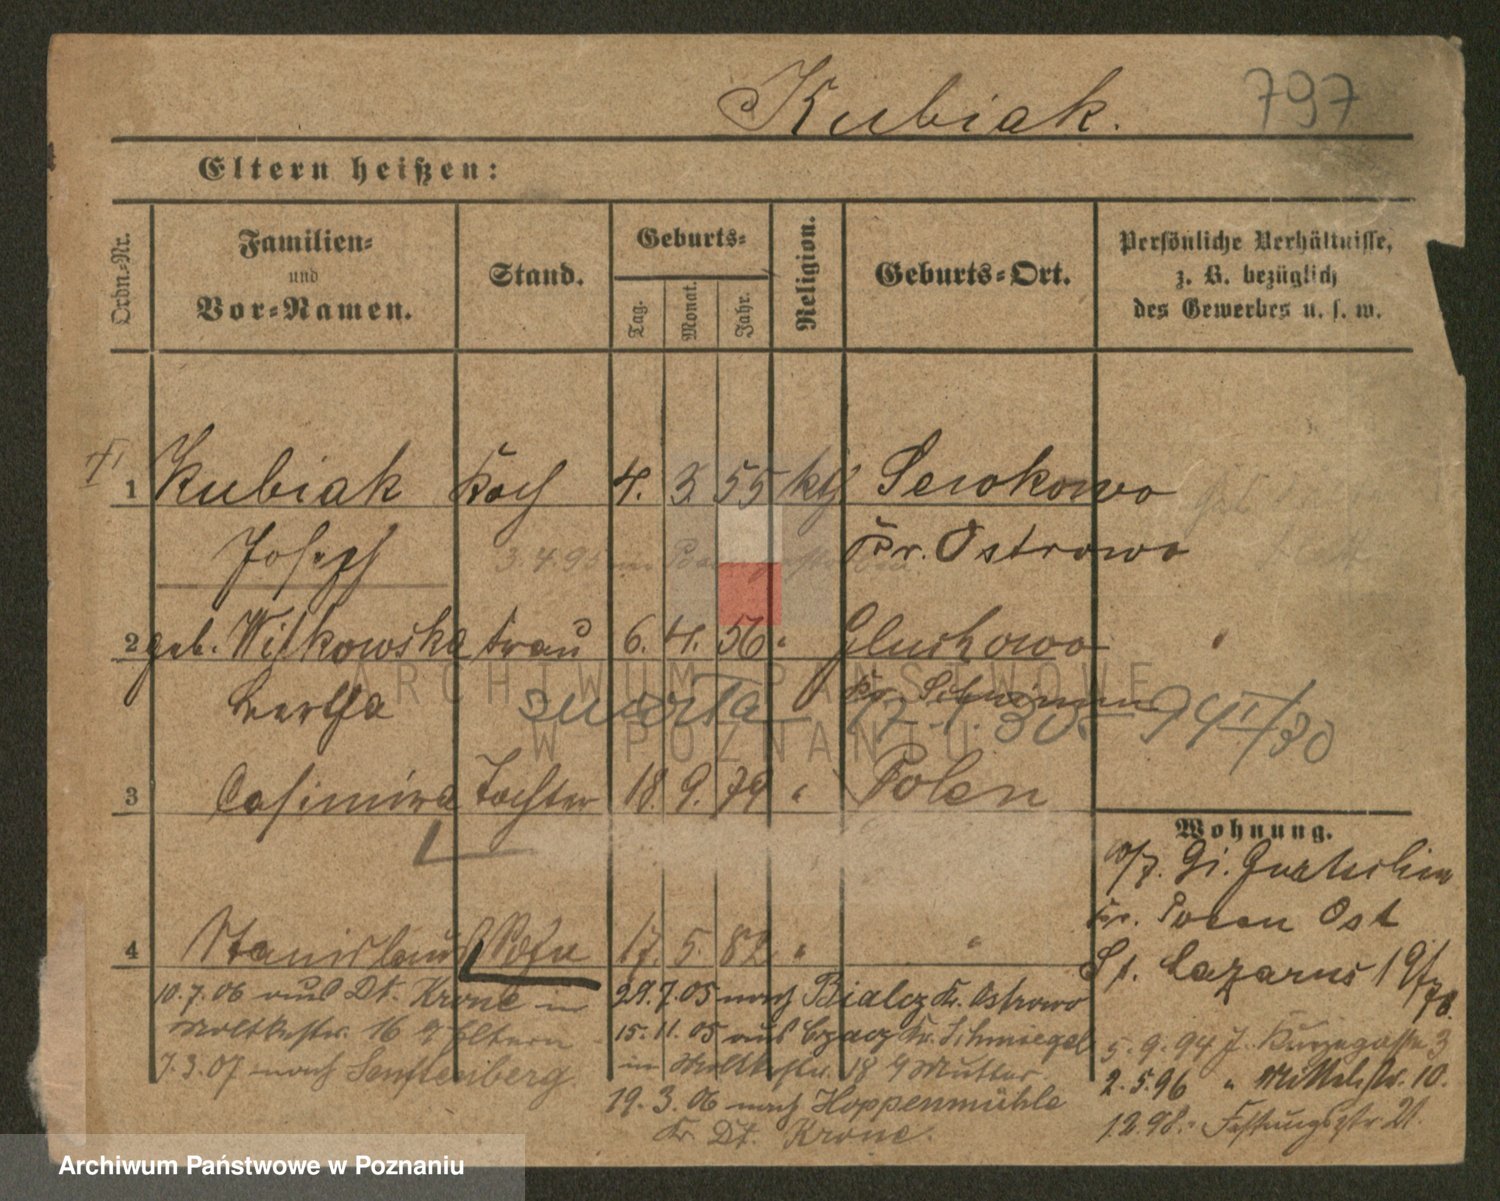 Kubiak.
797
Eltern heißen:
Ordn.-Nr.
Familien-
und
Vor-Namen.
Stand.
Geburts-
Tag.
Monat.
Jahr.
Religion.
Geburts-Ort.
Persönliche Verhältnisse,
z. B. bezüglich
des Gewerbes u. s. w.
1 Kubiak Koch 4. 3. 55 kth
Joseph Kr. Ostrowo
3.4.95
2 geb. Witkowska Frau 6. 4. 56 "
Bertha
3 Casimira Tochter 18. 9. 79 " Polen
Wohnung.
Kr. Posen Ost
St. Lazarus 19/
4 Stanislaus Sohn 17. 5. 82 " "
10.7.06 aus Dt. Krone in
Moltkestr. 16 Eltern
7.3.07 nach Senftenberg
29.7.05 nach Bialcz Kr. Ostrowo
15.11.05 aus Czacz Kr. Schmiegel
in Moltkestr. 18 Mutter
19.3.06 nach Hoppenmühle
Kr. Dt. Krone.
5.9.94 3
2.5.96 " Mittelstr. 10.
1.2.98. " Festungsstr 21.
ARCHIWUM PAŃSTWOWE
W POZNANIU
Archiwum Państwowe w Poznaniu